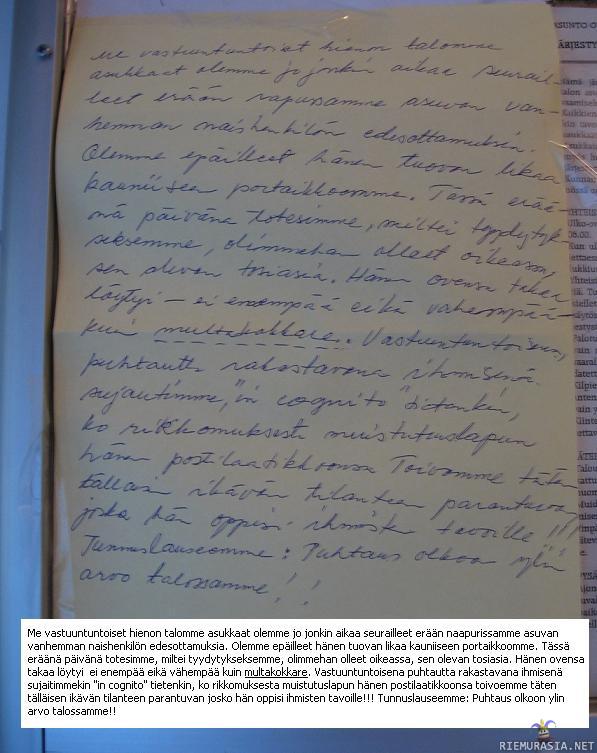 me vastuuntuntoiset hienon talomme
asukkaat olemme jo jonkin aikaa seurail-
leet erään rapussamme asuvan van-
hemman naishenkilön edesottamuksia.
Olemme epäilleet hänen tuovan likaa
kauniiseen portaikkoomme. Tässä erää-
nä päivänä totesimme, miltei tyydytyk-
seksemme, olimmehan olleet oikeassa,
sen olevan tosiasia. Hänen ovensa takaa
löytyi – ei enempää eikä vähempää
kuin multakokkare. Vastuuntuntoisena,
puhtautta rakastavana ihmisenä
sujautimme, "in cognito" tietenkin,
ko rikkomuksesta muistutuslapun
hänen postilaatikkoonsa Toivomme täten
tälläisen ikävän tilanteen parantuvan
joska hän oppisi ihmisten tavoille!!!
Tunnuslauseemme: Puhtaus olkoon ylin
arvo talossamme!!
ASUNTO-O
ÄRJESTY
Me vastuuntuntoiset hienon talomme asukkaat olemme jo jonkin aikaa seurailleet erään naapurissamme asuvan
vanhemman naishenkilön edesottamuksia. Olemme epäilleet hänen tuovan likaa kauniiseen portaikkoomme. Tässä
eräänä päivänä totesimme, miltei tyydytykseksemme, olimmehan olleet oikeassa, sen olevan tosiasia. Hänen ovensa
takaa löytyi ei enempää eikä vähempää kuin multakokkare. Vastuuntuntoisena puhtautta rakastavana ihmisenä
sujaitimmekin "in cognito" tietenkin, ko rikkomuksesta muistutuslapun hänen postilaatikkoonsa toivoemme täten
tälläisen ikävän tilanteen parantuvan josko hän oppisi ihmisten tavoille!!! Tunnuslauseemme: Puhtaus olkoon ylin
arvo talossamme!!
RIEMURASIA.NET